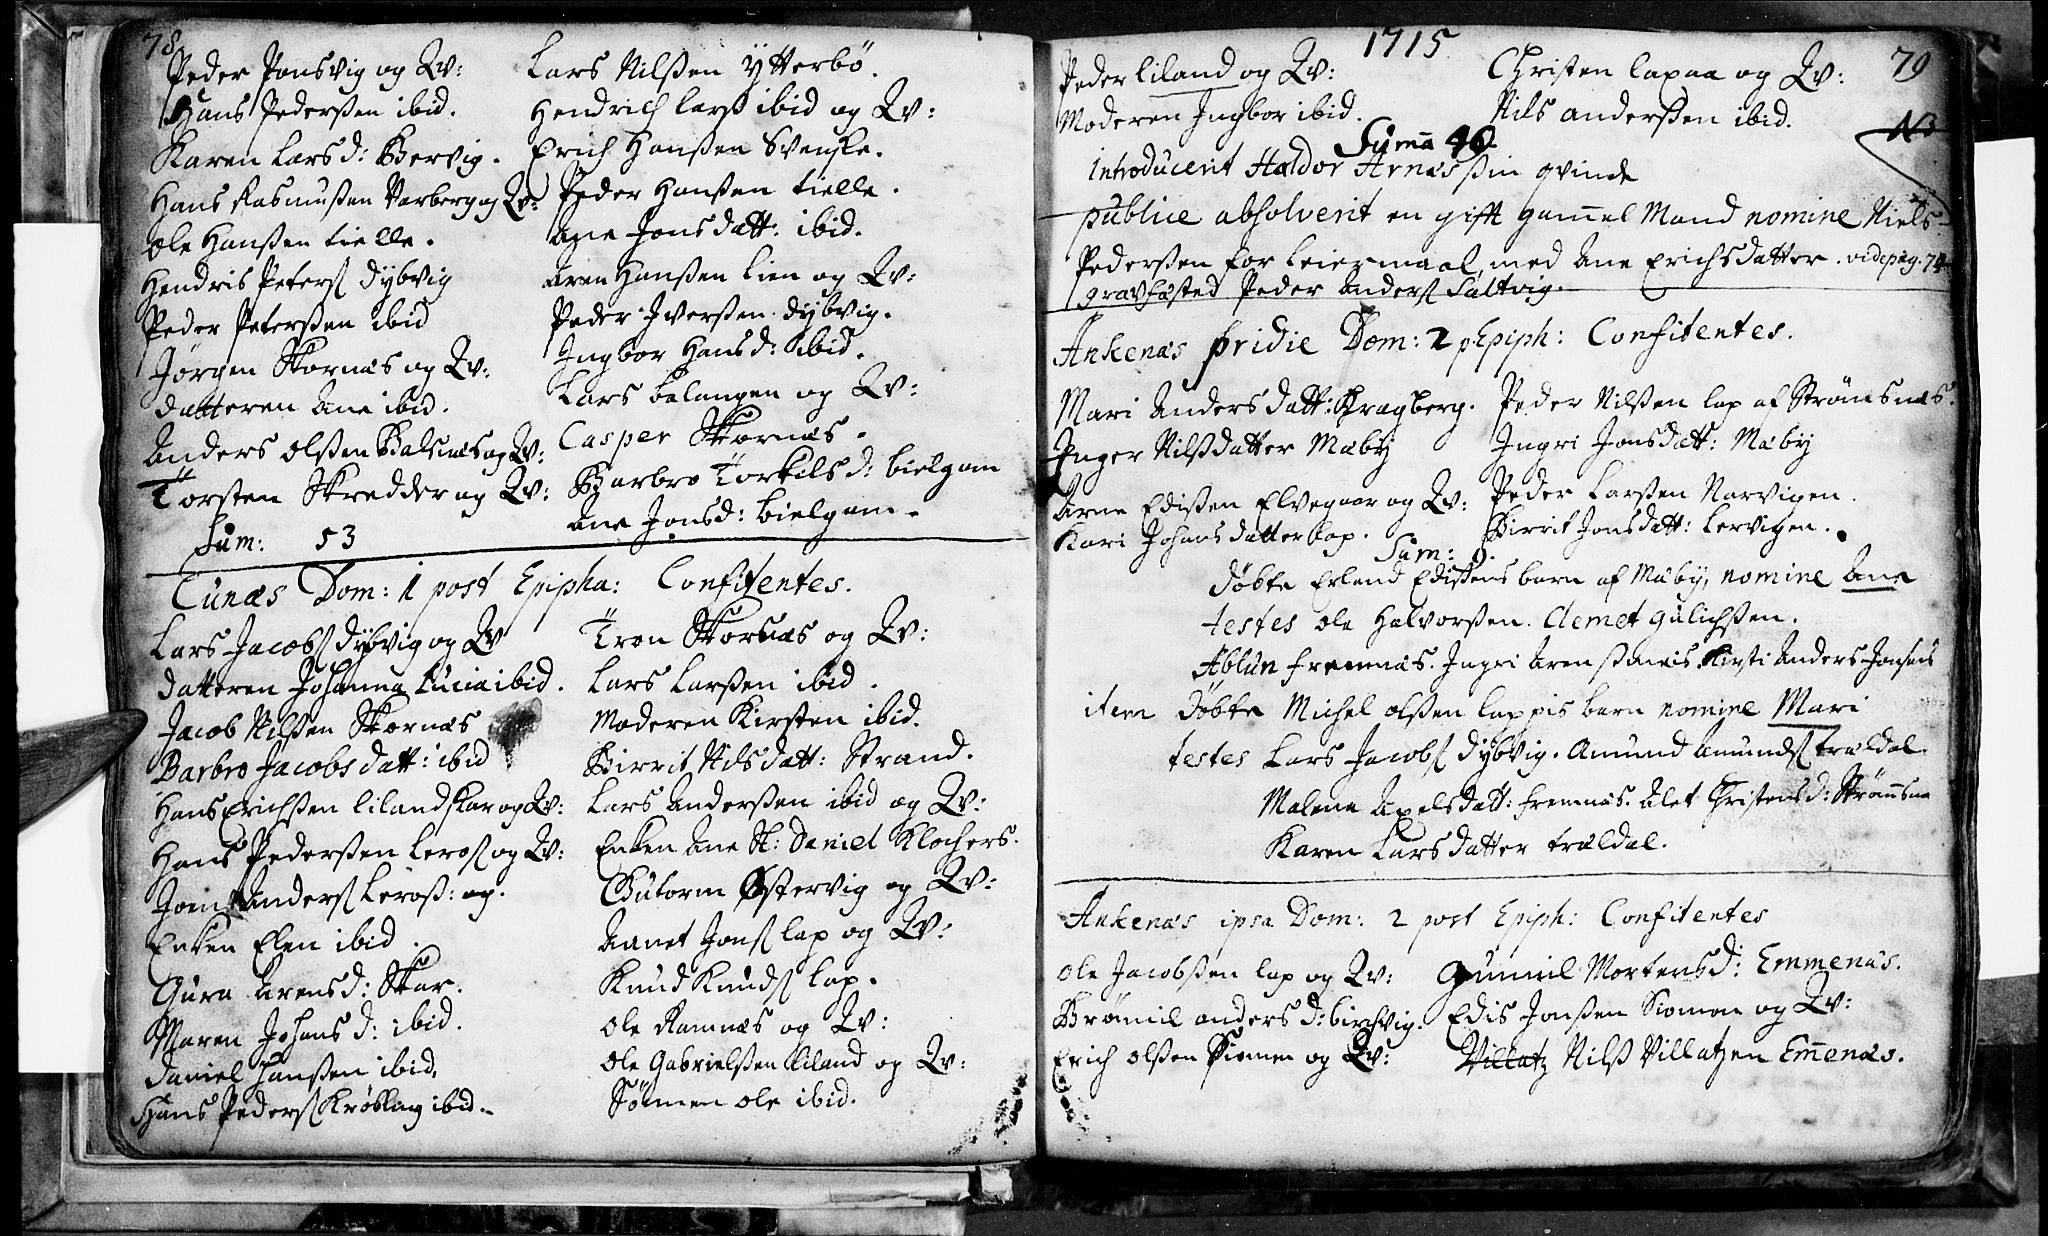 78.
Peder Ponsvig og Qv:
Hans Pederßen ibid.
Karen Lars d: Bervig.
Hans Rasmußen Varberg og Qv:
Ole Hanßen tielle.
Hendris Peters dybvig
Peder Peterßen ibid
Jørgen Skornæs og Qv:
datteren Ane ibid.
Anders Olßen Balsnæs og Qv:
Torsten Skredder og Qv:
Sum: 53
Lars Nilßen Ytterbö.
Hendrich Larß ibid og Qv:
Erich Hanßen Svenske.
Peder Hanßen tielle.
Ane Jons datt: ibid.
Aren Hanßen Lien og Qv:
Peder Iverßen dybvig.
Ingbor Hans d: ibid.
Lars balangen og Qv:
Casper Skornæs.
Barbro Torkils d: bielgam
Ane Jonsd: bielgam.
Eunæs Dom: 1 post Epipha: Confitentes.
Lars Jacobs dybvig og Qv
datteren Johanna Lucia ibid.
Jacob Nilßen Skornæs
Barbro Jacobs datt: ibid
Hans Erichßen lilandskar og Qv:
Hans Pederßen Leros og Qv:
Joen Anders Leroß: og.
Enken Elen ibid.
Gura Arens d: Skar.
Maren Johans d: ibid.
Daniel Hanßen ibid.
Hans Peders Krøblag ibid.
Tron Skornæs og Qv:
Lars Larßen ibid.
Moderen Kirsten ibid.
Birrit Nils datt: Strand.
Lars Anderßen ibid og Qv:
Enken Ane Sl: Daniel Klochers.
Gutorm Østervig og Qv:
Aanet Jons lap og Qv:
Knud Knuds lap.
Ole Ramnæs og Qv:
Ole Gabrielßen liland og Qv:
Sönnen Ole ibid.
1715
79
Peder liland og Qv:
Moderen Ingbor ibid.
Christen lapaa og Qv:
Nils anderßen ibid.
NB
Suma 40
introducerit Haldor Arnæs ßin qvinde
publice absolverit en gifft gamel Mand nomine Niels
Pederßen for Leiermaal, med Ane Erichsdatter. vide pag. 74
gravfæsted Peder Anders Saltvig.
Ankenæs pridie Dom: 2 p. Epiph: Confitentes.
Mari Anders datt: Kragberg.
Inger Nilßdatter Mæby
Arne Edißen Elvegaar og Qv:
Kari Johans datter lap.
Peder Nilßen lap af Strömsnæs.
Ingri Jonsdatt: Mæby
Peder Larßen Narvigen.
Birrit Jonsdatt: Lervigen.
Sum: 9.
döbte Erlend Edißens barn af Mæby, nomine Ane
testes ole Halvorßen. Clemet gulichßen.
Ablun fremnæs. Ingri Arens Kirsti Anders Jonsens
item döbte Michel olßen lappis barn nomine Mari
testes Lars Jacobs dybvig. Amund Amunds trældal.
Malena Axelsdatt: fremnæs. Alet Christensd: Strömsnæ
Karen Lars datter trældal.
Ankenæs ipsa Dom: 2 post Epiph: Confitentes
Ole Jacobßen lap og Qv:
Brömil anders d: birchvig.
Erich olßen Siomen og Qv:
Gunnil Mortens d: Emmenæs.
Edis Jonßen Siomon og Qv:
Villatz Nilß Villatzen Emenæs.